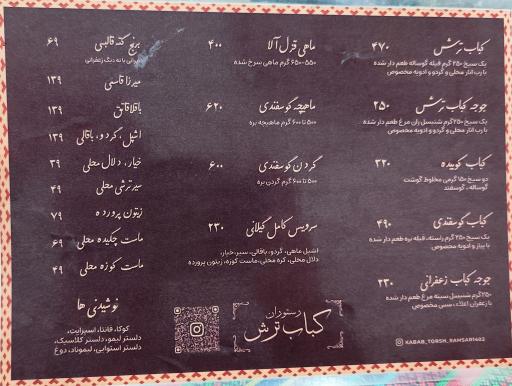 کباب ترش ۴۷۰
یک سیخ ۲۵۰ گرم فیله گوساله طعم دار شده
با رب انار محلی و گردو و ادویه مخصوص
جوجه کباب ترش ۲۵۰
یک سیخ ۲۵۰ گرم شنیسل ران مرغ طعم دار شده
با رب انار محلی و گردو و ادویه مخصوص
کباب کوبیده ۳۲۰
دو سیخ ۱۵۰ گرمی مخلوط گوشت
گوساله، گوسفند
کباب گوسفندی ۴۹۰
یک سیخ ۲۵۰ گرم راسته، فیله بره طعم دار شده
با پیاز و ادویه مخصوص
جوجه کباب زعفرانی ۲۳۰
۲۵۰ گرم شنیسل سینه مرغ طعم دار شده
با زعفران اعلاء، سس مخصوص
KABAB_TORSH_RAMSAR1402
ماهی قزل آلا ۴۰۰
۵۵۰-۶۵۰ گرم ماهی سرخ شده
ماهیچه گوسفندی ۶۲۰
۵۰۰ تا ۶۰۰ گرم ماهیچه بره
گردن گوسفندی ۶۰۰
۵۰۰ تا ۶۰۰ گرم گردن بره
سرویس کامل گیلانی ۲۳۰
اشپل ماهی، گردو، باقالی، سیر، خیار،
دلال محلی، کره محلی، ماست کوزه، زیتون پرورده
رستوران
کباب ترش
برنج کته قالبی ۶۹
ایرانی با ته دیگ زعفرانی
میرزا قاسمی ۱۳۹
باقلا قاتق ۱۳۹
اشپل، گردو، باقالی ۱۳۹
خیار، دلال محلی ۳۹
سیر ترشی محلی ۴۹
زیتون پرورده ۷۹
ماست چکیده محلی ۶۹
ماست کوزه محلی ۴۹
نوشیدنی ها
کوکا، فانتا، اسپرایت،
دلستر لیمو، دلستر کلاسیک،
دلستر استوایی، لیموناد، دوغ